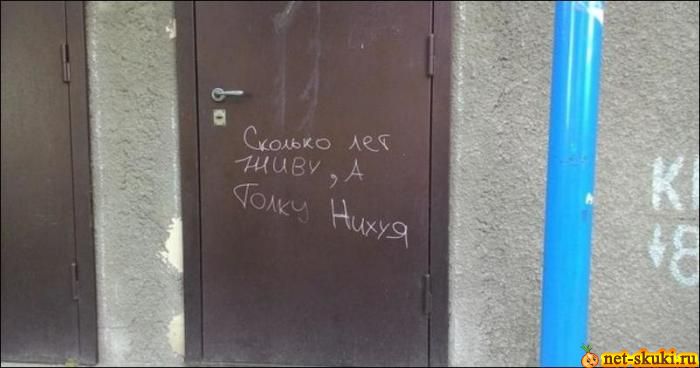 Сколько лет
живу, а
Толку Нихуя
К
+8
net-skuki.ru